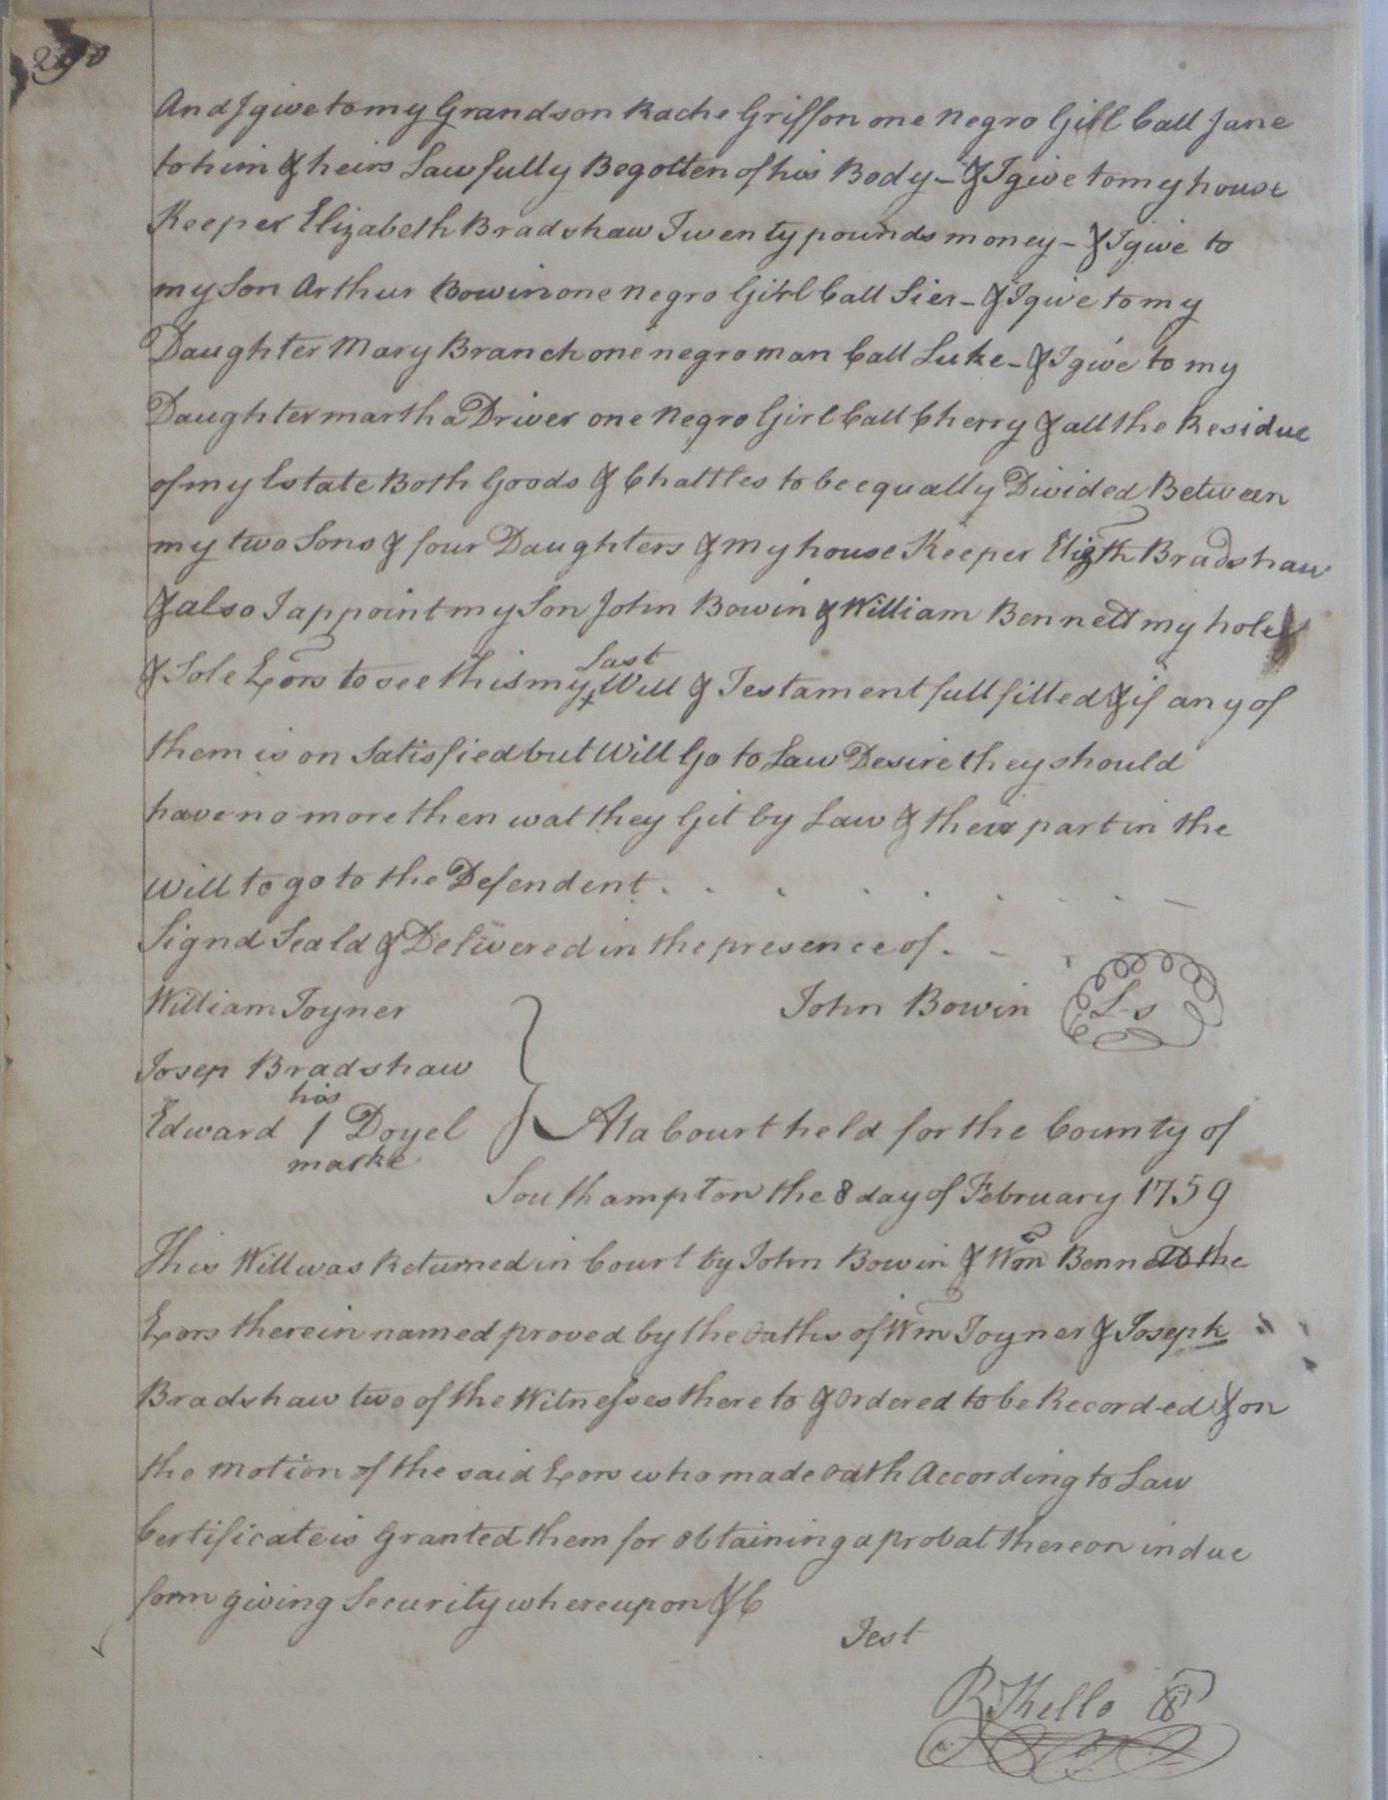 And I give to my Grandson Rache Griffon one negro Girl Call Jane
to him & heirs Lawfully Begotten of his Body - & I give to my house
Keeper Elizabeth Bradshaw Twenty pounds money - & I give to
my Son Arthur Bowin one negro Girl Call Sier - & I give to my
Daughter Mary Branch one negro man Call Luke - & I give to my
Daughter martha Driver one Negro Girl Call Cherry & all the Residue
of my Estate Both Goods & Chattles to be equally Divided Between
my two Sons & four Daughters & my house Keeper Elizth Bradshaw
& also I appoint my Son John Bowin & William Bennett my hole
& Sole Exors to see this my last Will & Testament full filled & if any of
them is on Satisfied but Will Go to Law Desire they should
have no more then wat they Git by Law & their part in the
Will to go to the Defendent
Signd Seald & Delivered in the presence of
William Joyner John Bowin L-s
Josep Bradshaw
his
Edward 1 Doyel At a Court held for the County of
marke
Southampton the 8 day of February 1759
This Will was Returned in Court by John Bowin & Wm Bennett the
Exors therein named proved by the oaths of Wm Joyner & Joseph
Bradshaw two of the Witnesses there to & Ordered to be Recorded & on
the motion of the said Exors who made oath According to Law
Certificate is Granted them for obtaining a probat thereon in due
form giving Security whereupon &C
Test
R Kello